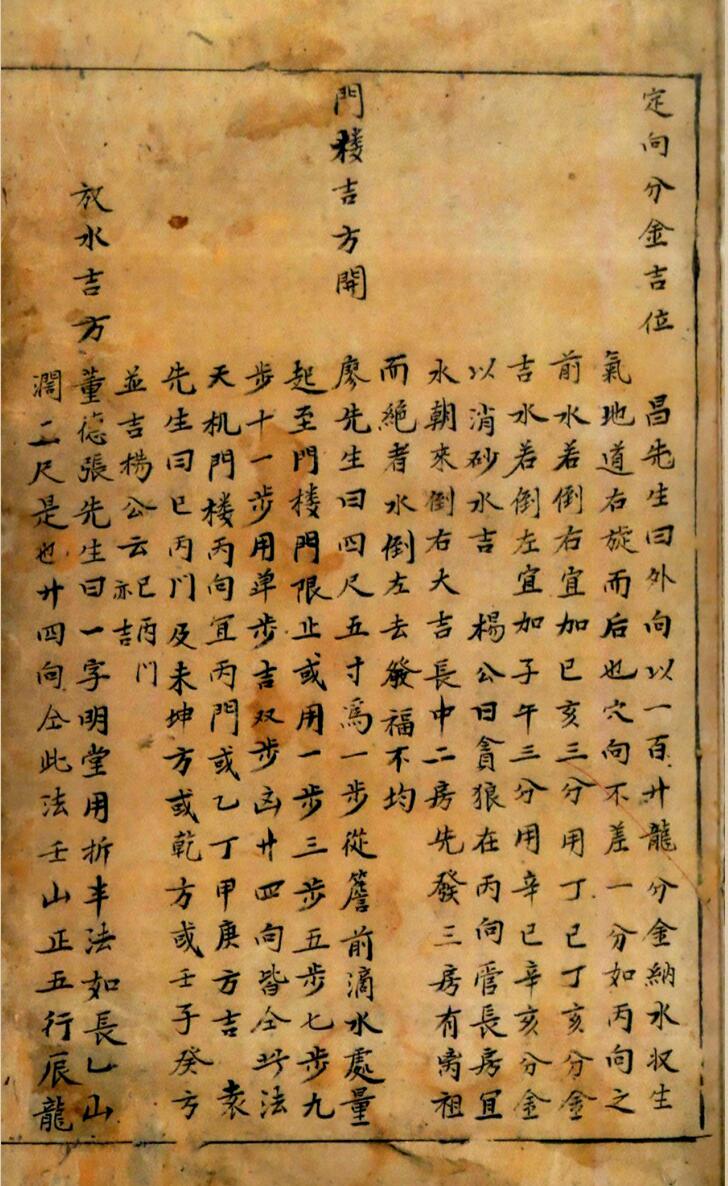 定向分金吉位
昌先生曰外向以一百廿龍分金納水収生
氣地道右旋而后也穴向不差一分如丙向之
前水若倒右宜加巳亥三分用丁巳丁亥分金
吉水若倒左宜加子午三分用辛巳辛亥分金
以消砂水吉 楊公曰貪狼在丙向管長房宜
水朝來倒右大吉長中二房先發三房有离祖
而絶者水倒左去發福不均
門楼吉方開
廖先生曰四尺五寸爲一步從簷前滴水處量
起至門楼門限止或用一步三步五步七步九
步十一步用单步吉双步凶廿四向皆仝此法
天机門楼丙向宜丙門或乙丁甲庚方吉 袁
先生曰巳丙门及未坤方或乾方或壬子癸方
並吉楊公云巳丙门亦吉
放水吉方
董德張先生曰一字明堂用折半法如長乚山
濶二尺是也廿四向仝此法壬山正五行辰龍